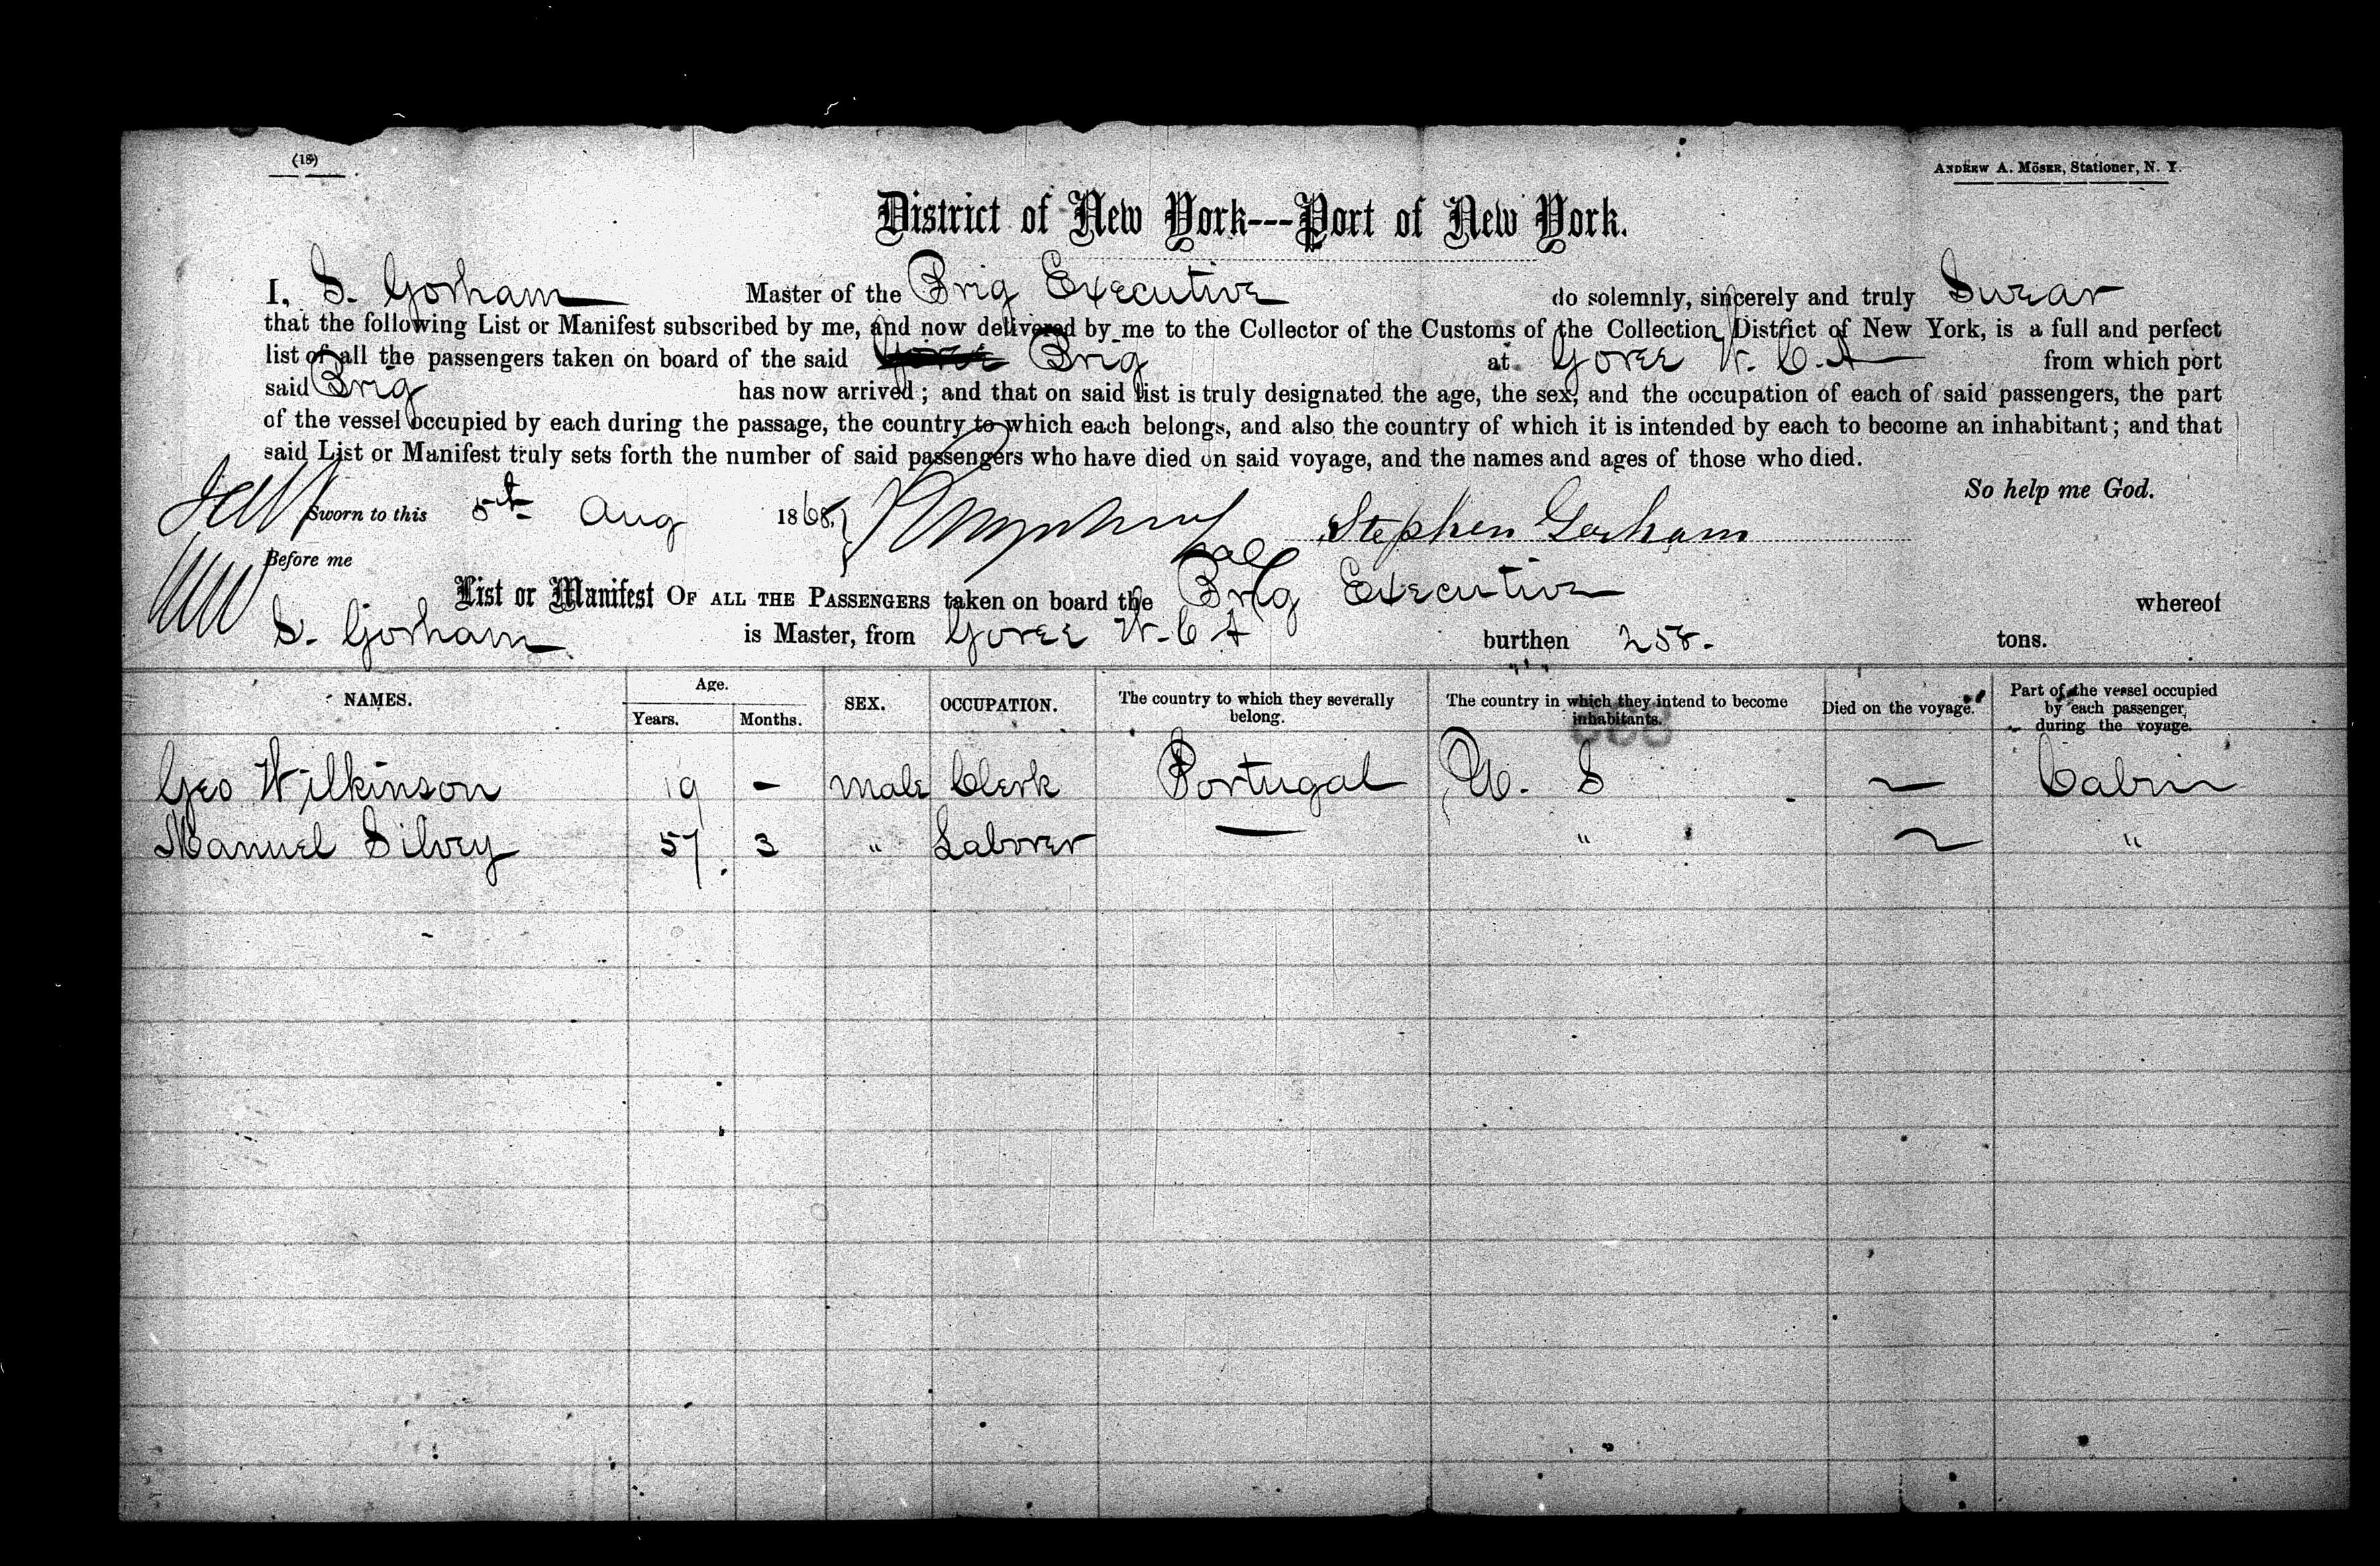 (18)
ANDREW A. MÖSER, Stationer, N. Y.
District of New York---Port of New York.
I, S. Gorham Master of the Brig Executive do solemnly, sincerely and truly Swear
that the following List or Manifest subscribed by me, and now delivered by me to the Collector of the Customs of the Collection District of New York, is a full and perfect
list of all the passengers taken on board of the said Brig at Goree W. C. A from which port
said Brig has now arrived; and that on said list is truly designated the age, the sex, and the occupation of each of said passengers, the part
of the vessel occupied by each during the passage, the country to which each belongs, and also the country of which it is intended by each to become an inhabitant; and that
said List or Manifest truly sets forth the number of said passengers who have died on said voyage, and the names and ages of those who died.
So help me God.
Sworn to this 5th Aug 1868. Stephen Gorham
Before me
List or Manifest OF ALL THE PASSENGERS taken on board the Brig Executive whereof
S. Gorham is Master, from Goree W. C A burthen 258. tons.
NAMES. Age. Years. Months. SEX. OCCUPATION. The country to which they severally belong. The country in which they intend to become inhabitants. Died on the voyage. Part of the vessel occupied by each passenger, during the voyage.
888
Geo Wilkinson 19 - Male Clerk Portugal U. S — Cabin
Manuel Silvey 57 3 " Laborer — " — "